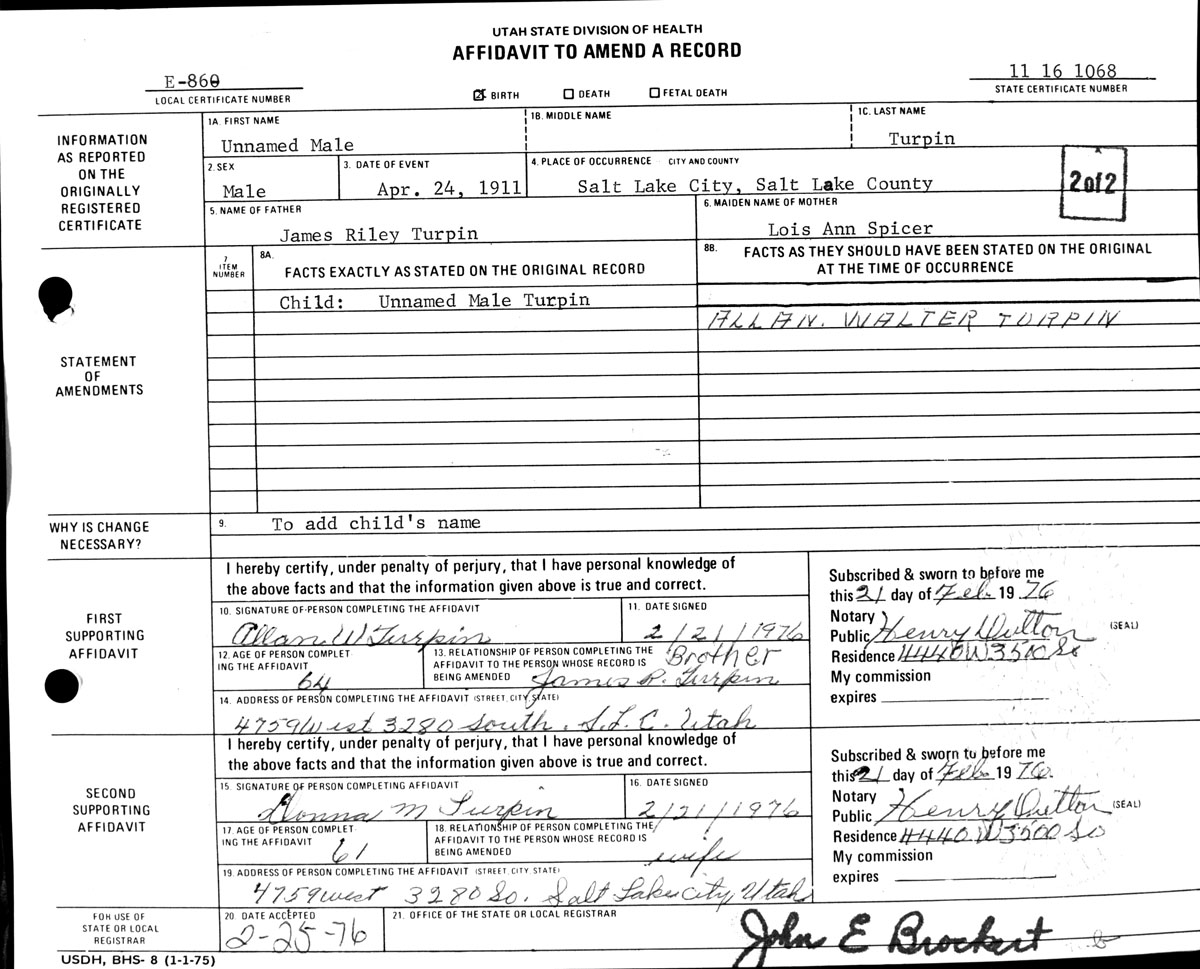 UTAH STATE DIVISION OF HEALTH
AFFIDAVIT TO AMEND A RECORD
E-860
LOCAL CERTIFICATE NUMBER
BIRTH DEATH FETAL DEATH
11 16 1068
STATE CERTIFICATE NUMBER
INFORMATION
AS REPORTED
ON THE
ORIGINALLY
REGISTERED
CERTIFICATE
1A. FIRST NAME
Unnamed Male
1B. MIDDLE NAME
1C. LAST NAME
Turpin
2. SEX
Male
3. DATE OF EVENT
Apr. 24, 1911
4. PLACE OF OCCURRENCE CITY AND COUNTY
Salt Lake City, Salt Lake County
2 of 2
5. NAME OF FATHER
James Riley Turpin
6. MAIDEN NAME OF MOTHER
Lois Ann Spicer
STATEMENT
OF
AMENDMENTS
7
ITEM
NUMBER
8A.
FACTS EXACTLY AS STATED ON THE ORIGINAL RECORD
8B. FACTS AS THEY SHOULD HAVE BEEN STATED ON THE ORIGINAL
AT THE TIME OF OCCURRENCE
Child: Unnamed Male Turpin
ALLAN. WALTER TURPIN
WHY IS CHANGE
NECESSARY?
9. To add child's name
FIRST
SUPPORTING
AFFIDAVIT
I hereby certify, under penalty of perjury, that I have personal knowledge of
the above facts and that the information given above is true and correct.
10. SIGNATURE OF PERSON COMPLETING THE AFFIDAVIT
Allan W Turpin
11. DATE SIGNED
2/21/1976
12. AGE OF PERSON COMPLET
ING THE AFFIDAVIT
64
13. RELATIONSHIP OF PERSON COMPLETING THE
AFFIDAVIT TO THE PERSON WHOSE RECORD IS
BEING AMENDED
Brother
James R. Turpin
14. ADDRESS OF PERSON COMPLETING THE AFFIDAVIT (STREET, CITY, STATE)
4759 West 3280 South. S.L.C. Utah
Subscribed & sworn to before me
this 21 day of Feb. 19 76
Notary
Public Henry Dutton (SEAL)
Residence 4440 W 3500 So
My commission
expires
SECOND
SUPPORTING
AFFIDAVIT
I hereby certify, under penalty of perjury, that I have personal knowledge of
the above facts and that the information given above is true and correct.
15. SIGNATURE OF PERSON COMPLETING AFFIDAVIT
Donna M Turpin
16. DATE SIGNED
2/21/1976
17. AGE OF PERSON COMPLET
ING THE AFFIDAVIT
61
18. RELATIONSHIP OF PERSON COMPLETING THE
AFFIDAVIT TO THE PERSON WHOSE RECORD IS
BEING AMENDED
wife
19. ADDRESS OF PERSON COMPLETING THE AFFIDAVIT (STREET, CITY, STATE)
4759 west 3280 So. Salt Lake city, Utah
Subscribed & sworn to before me
this 21 day of Feb 19 76
Notary
Public Henry Dutton (SEAL)
Residence 4440 W 3500 So
My commission
expires
FOR USE OF
STATE OR LOCAL
REGISTRAR
20. DATE ACCEPTED
2-25-76
21. OFFICE OF THE STATE OR LOCAL REGISTRAR
John E Brockert
USDH, BHS- 8 (1-1-75)